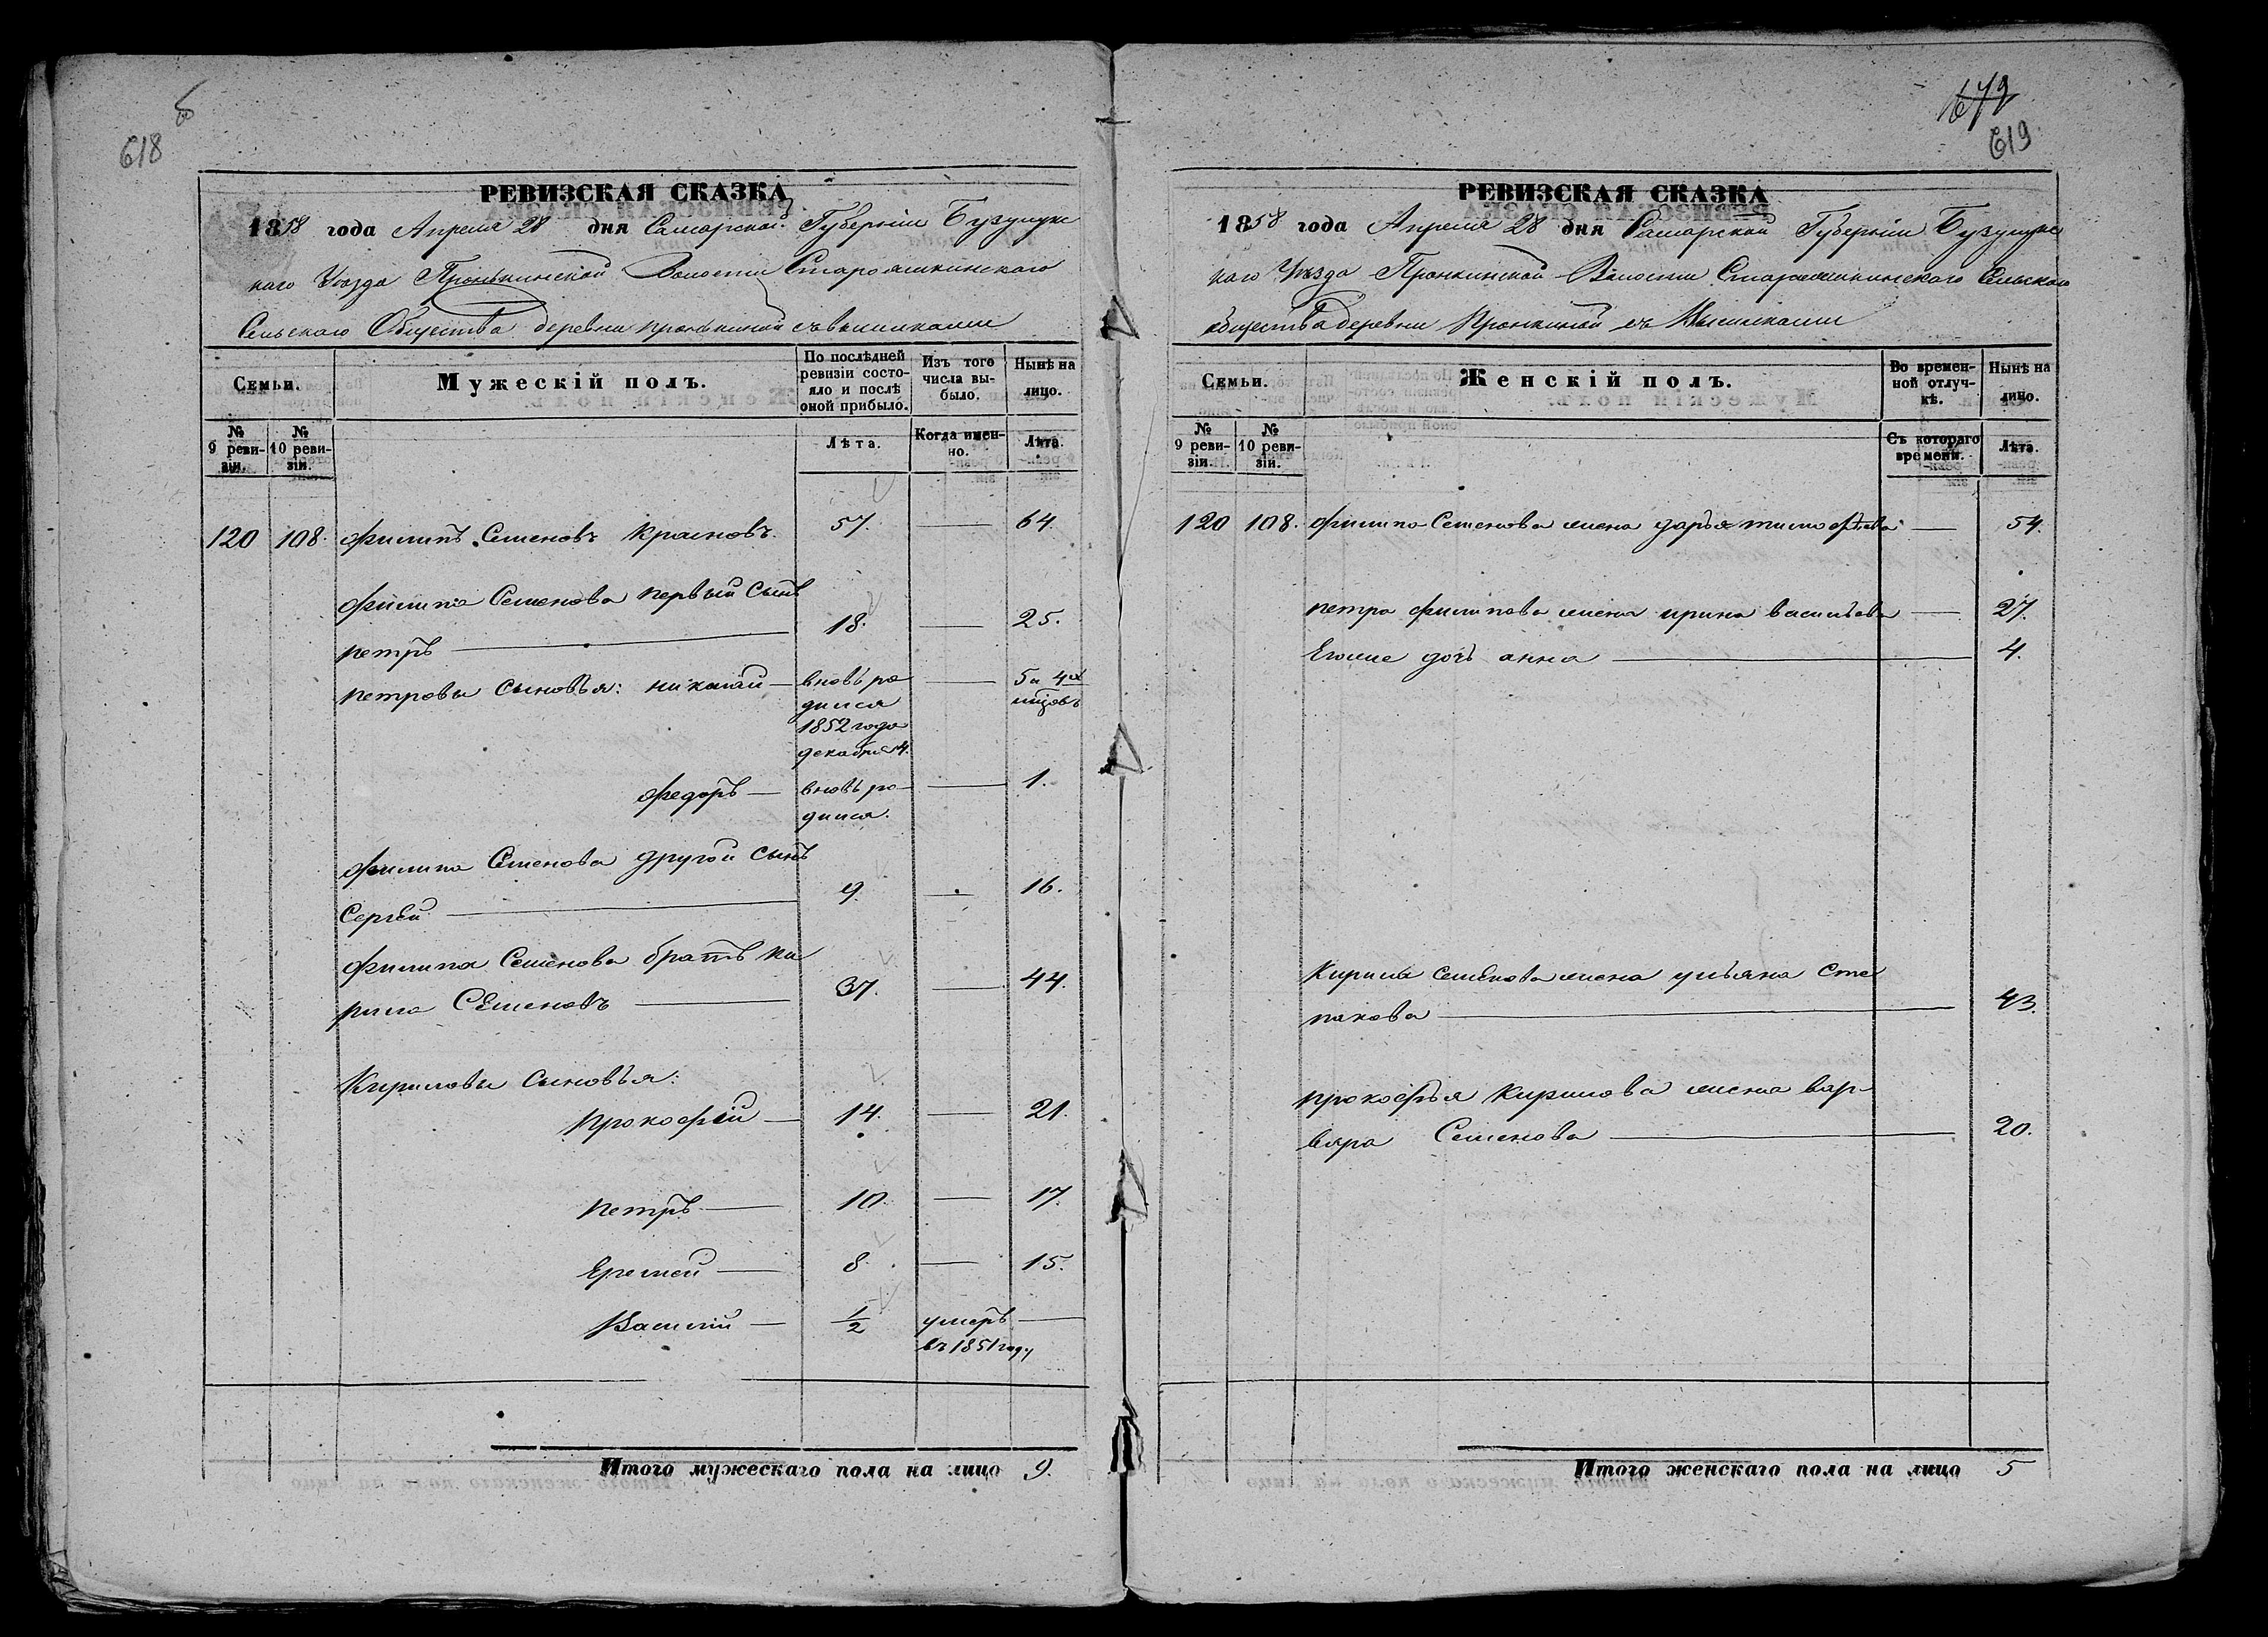 618
РЕВИЗСКАЯ СКАЗКА
1858 года Апреля 28 дня Самарской Губернiи Бузулукс
каго Уѣзда Пронькинской Волости Староашкинскаго
Сельскаго Общества деревни пронькиной съ выселками
Семьи.
Мужескiй полъ.
По послѣдней ревизiи состояло и послѣ оной прибыло.
Изъ того числа выбыло.
Нынѣ на лицо.
№ 9 ревизiи.
№ 10 ревизiи.
Лѣта.
Когда именно.
Лѣта.
120 108. Филипъ Семеновъ Красновъ. 57. — 64.
Филипа Семенова первый сынъ
петръ — 18. — 25.
петровы сыновья: николай — вновь ро — 5 и 4х
дился мцовъ
1852 года
декабря 4.
Федоръ — вновь ро — 1.
дился.
Филипа Семенова другой сынъ
Сергѣй — 9. — 16.
Филипа Семенова братъ ки
рила Семеновъ — 37. — 44.
Кириловы сыновья:
Прокофiй — 14. — 21.
Петръ — 10. — 17.
Еремей — 8. — 15.
Василiй — 1/2 умеръ —
въ 1851 году
Итого мужескаго пола на лицо 9.
679
619
РЕВИЗСКАЯ СКАЗКА
1858 года Апреля 28 дня Самарской Губернiи Бузулукс
каго Уѣзда Пронкинской Волости Староашкинскаго Сельскаго
общества деревни Пронкиной съ Выселками
Семьи.
Женскiй полъ.
Во временной отлучкѣ.
Нынѣ на лицо.
№ 9 ревизiи.
№ 10 ревизiи.
Съ котораго времени.
Лѣта.
120 108. Филипа Семенова жена дарья тимофѣева — 54.
петра филипова жена ирина васильева — 27.
Егоже дочь анна — 4.
Кирила семенова жена ульяна сте
панова — 43.
прокофья Кирилова жена вар
вара Семенова — 20.
Итого женскаго пола на лицо 5